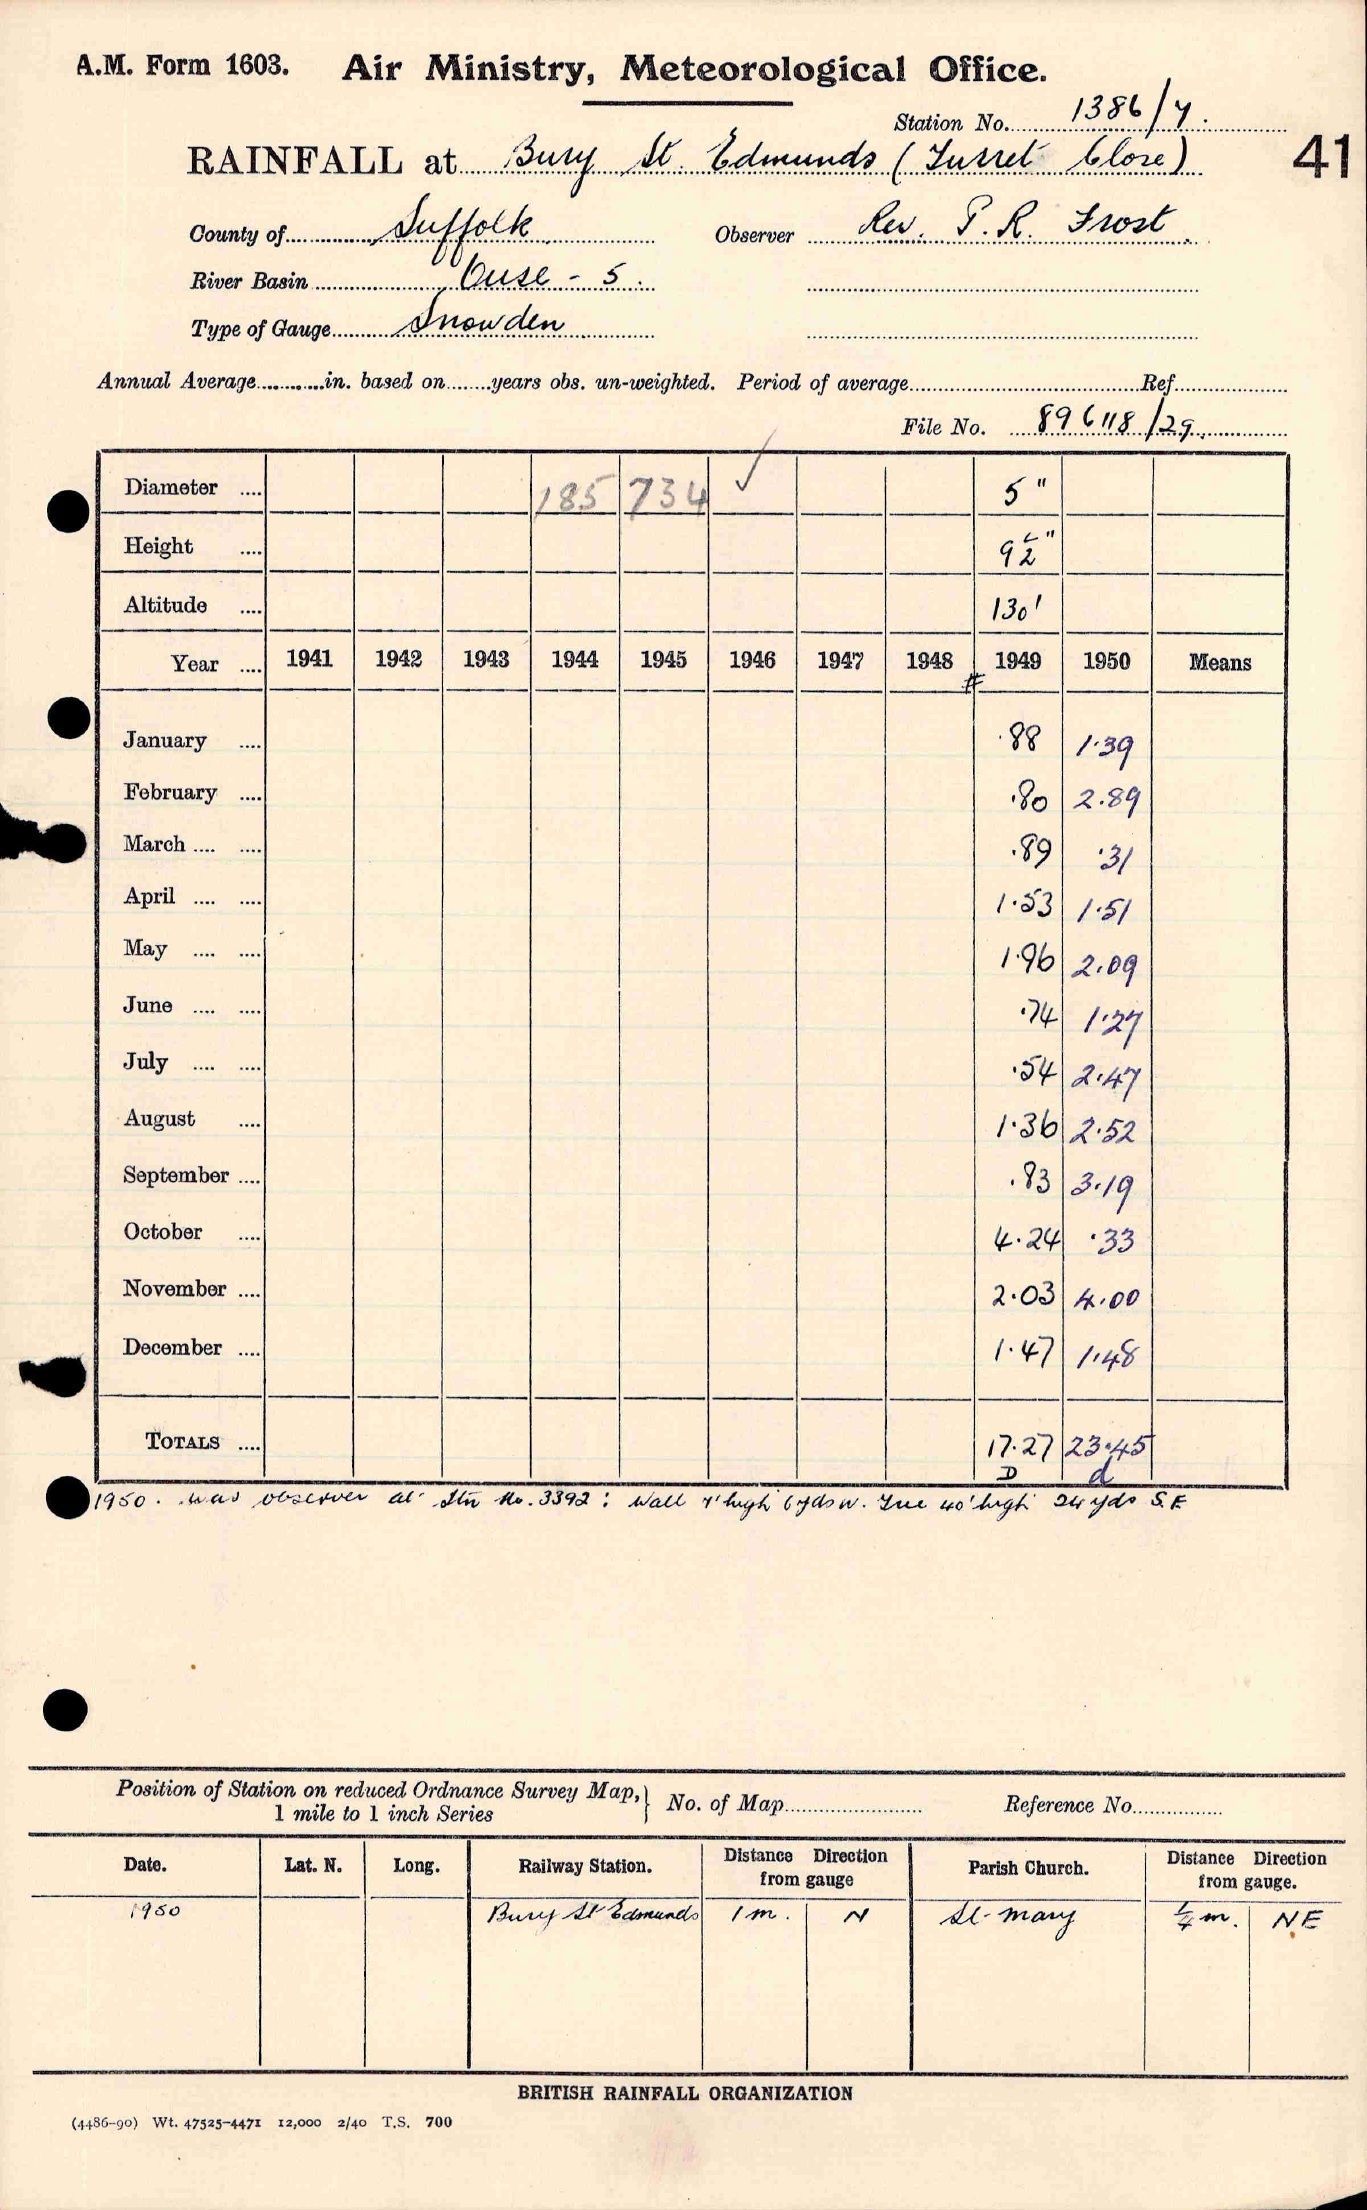 A.M. Form 1603. Air Ministry, Meteorological Office.
Station No. 1386/7.
41
RAINFALL at Bury St. Edmunds (Turret Close)
County of Suffolk Observer Rev. P. R. Frost
River Basin Ouse - 5.
Type of Gauge Snowden
Annual Average in. based on years obs. un-weighted. Period of average Ref
File No. 896118/29.
Diameter .... 185 734 ✓ 5"
Height .... 9½"
Altitude .... 130'
Year .... 1941 1942 1943 1944 1945 1946 1947 1948 # 1949 1950 Means
January .... ·88 1·39
February .... ·80 2·89
March .... .... ·89 ·31
April .... .... 1·53 1·51
May .... .... 1·96 2·09
June .... .... ·74 1·27
July .... .... ·54 2·47
August .... 1·36 2·52
September .... ·83 3·19
October .... 4·24 ·33
November .... 2·03 4·00
December .... 1·47 1·48
TOTALS .... 17·27 23·45
D d
1950. was observer at Stn No. 3392: Wall 7' high 6 yds W. Tree 40' high 24 yds S.E
Position of Station on reduced Ordnance Survey Map, } No. of Map Reference No.
1 mile to 1 inch Series
Date. Lat. N. Long. Railway Station. Distance Direction from gauge Parish Church. Distance Direction from gauge.
1950 Bury St Edmunds 1 m. N St. Mary ¼ m. NE
BRITISH RAINFALL ORGANIZATION
(4486-90) Wt. 47525-4471 12,000 2/40 T.S. 700